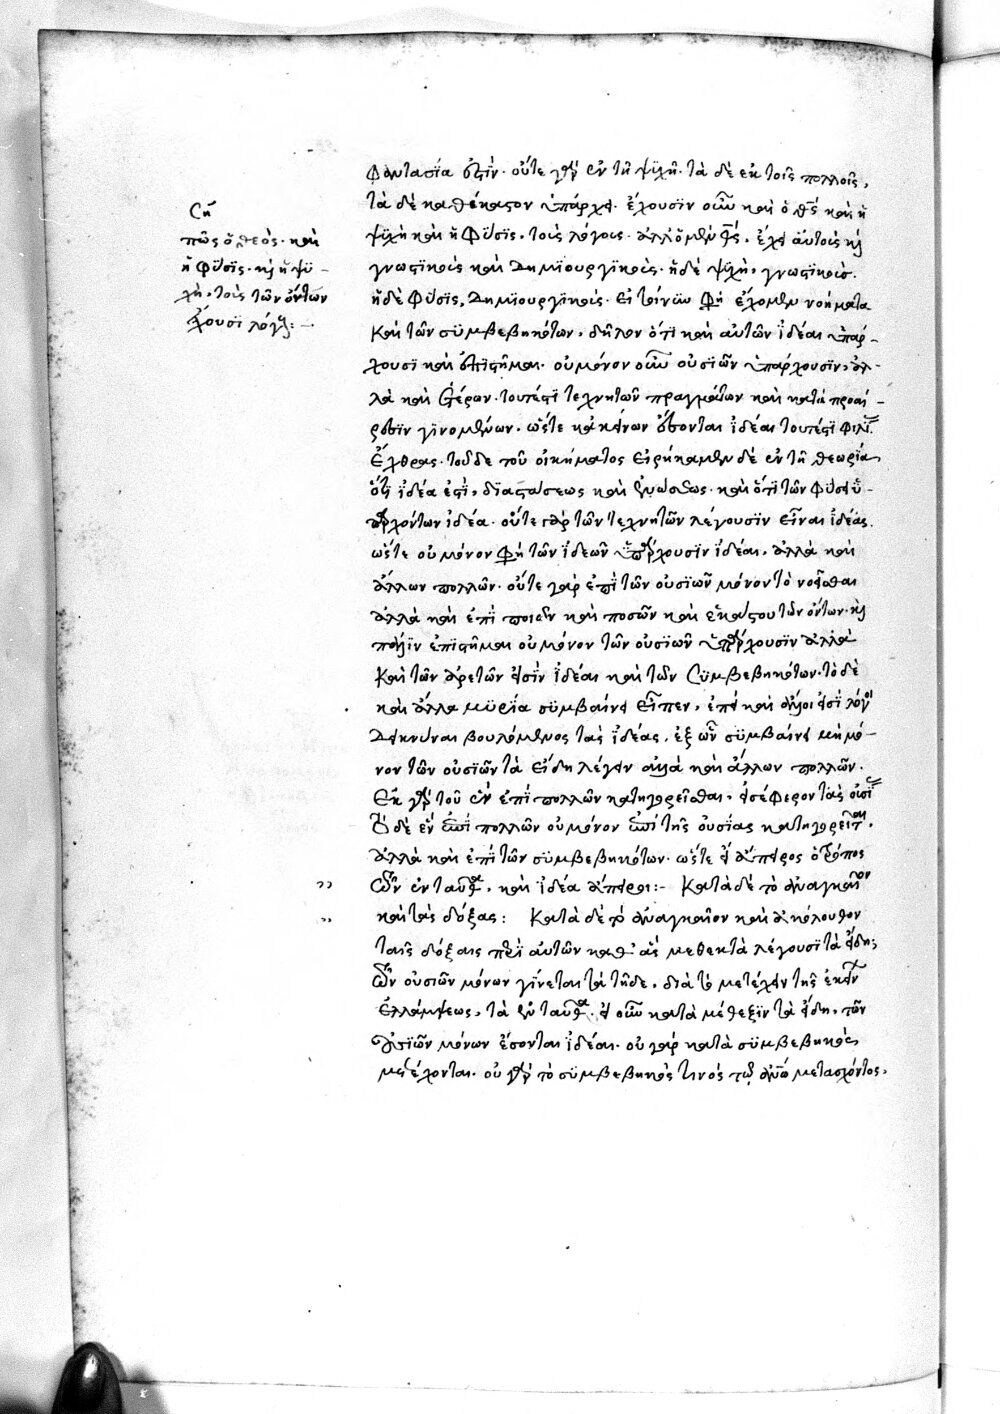 φαντασία ἐστίν. οὔτε γὰρ ἐν τῇ ψυχῇ. τὰ δὲ ἐκ τοῖς πολλοῖς,
τὰ δὲ καθέκαστον ὑπάρχει. ἔχουσιν οὖν καὶ ὁ θεὸς καὶ ἡ
ψυχὴ καὶ ἡ φύσις, τοὺς λόγους. ἀλλ' ὁ μὲν θεὸς, ἔχει αὐτοὺς καὶ
γνωστικοὺς καὶ δημιουργικούς. ἡ δὲ ψυχὴ, γνωστικούς.
ἡ δὲ φύσις, δημιουργικούς. εἰ τοίνυν φησὶ ἔχομεν νοήματα
καὶ τῶν συμβεβηκότων, δῆλον ὅτι καὶ αὐτῶν ἰδέαι ὑπάρ-
χουσι καὶ ἐπιστῆμαι. οὐ μόνον οὖν οὐσιῶν ὑπάρχουσιν, ἀλ-
λὰ καὶ ἑτέρων. τουτέστι τεχνητῶν πραγμάτων καὶ κατὰ προαί-
ρεσιν γινομένων. ὥστε κἀκείνων ἔσονται ἰδέαι τουτέστι φιλί
ἔχθρας. τοῦδε τοῦ οἰκήματος εἰρήκαμεν δὲ ἐν τῇ θεωρίᾳ,
ὅτι ἰδέα ἐστὶ, διαστάσεως καὶ ἑνώσεως. καὶ ὅτι τῶν φύσει ὑ-
παρχόντων ἰδέα. οὔτε γὰρ τῶν τεχνητῶν λέγουσιν εἶναι ἰδέας.
ὥστε οὐ μόνον φησὶ τῶν ἰδεῶν ὑπάρχουσιν ἰδέαι, ἀλλὰ καὶ
ἄλλων πολλῶν. οὔτε γὰρ ἐπὶ τῶν οὐσιῶν μόνον τὸ νοεῖσθαι
ἀλλὰ καὶ ἐπὶ ποιῶν καὶ ποσῶν καὶ ἑκάστου τῶν ὄντων. καὶ
πάλιν ἐπιστῆμαι οὐ μόνον τῶν οὐσιῶν ὑπάρχουσιν ἀλλὰ
καὶ τῶν ἀρετῶν εἰσὶν ἰδέαι καὶ τῶν συμβεβηκότων. τὸ δὲ
καὶ ἄλλα μυρία συμβαίνει εἶπεν, ἐπεὶ καὶ ἄλλοι εἰσὶ λόγοι
δεικνύναι βουλόμενος τὰς ἰδέας, ἐξ ὧν συμβαίνει μὴ μό-
νον τῶν οὐσιῶν τὰ εἴδη λέγειν ἀλλὰ καὶ ἄλλων πολλῶν.
ἐκ γὰρ τοῦ ἓν ἐπὶ πολλῶν κατηγορεῖσθαι, εἰσέφερον τὰς οὐσί
τὸ δὲ ἓν ἐπὶ πολλῶν οὐ μόνον ἐπὶ τῆς οὐσίας κατηγορεῖται,
ἀλλὰ καὶ ἐπὶ τῶν συμβεβηκότων. ὥστε εἰ ἄπειρος ὁ τρόπος
ὧν ἐνταῦθα, καὶ ἰδέα ἄπειροι:- Κατὰ δὲ τὸ ἀναγκαῖον
καὶ τὰς δόξας: Κατὰ δὲ τὸ ἀναγκαῖον καὶ ἀκόλουθον
ταῖς δόξαις περὶ αὐτῶν καθ' ἃς μεθεκτὰ λέγουσι τὰ εἴδη;
ὧν οὐσιῶν μόνων γίνεται τὰ τῇδε, διὰ τὸ μετέχειν τῆς ἐκεῖθεν
ἐλλάμψεως, τὰ ἐνταῦθα. εἰ οὖν κατὰ μέθεξιν τὰ εἴδη, τῶν
οὐσιῶν μόνων ἔσονται ἰδέαι. οὐ γὰρ κατὰ συμβεβηκὸς
μετέχονται. οὐ γὰρ τὸ συμβεβηκὸς τινός τῷ ἄνω μετασχόντος.
ση
πῶς ὁ θεὸς. καὶ
ἡ φύσις. καὶ ἡ ψυ-
χὴ, τοὺς τῶν ὄντων
ἔχουσι λόγους:-